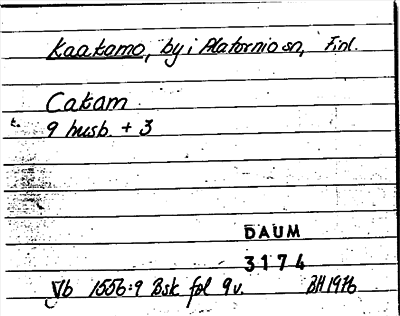 Kaakamo, by i Alatornio sn, Finl.
Cakam
t. 9 husb. + 3
DAUM
3174
Jb 1556:9 Bsk fol 9v. BH 1976